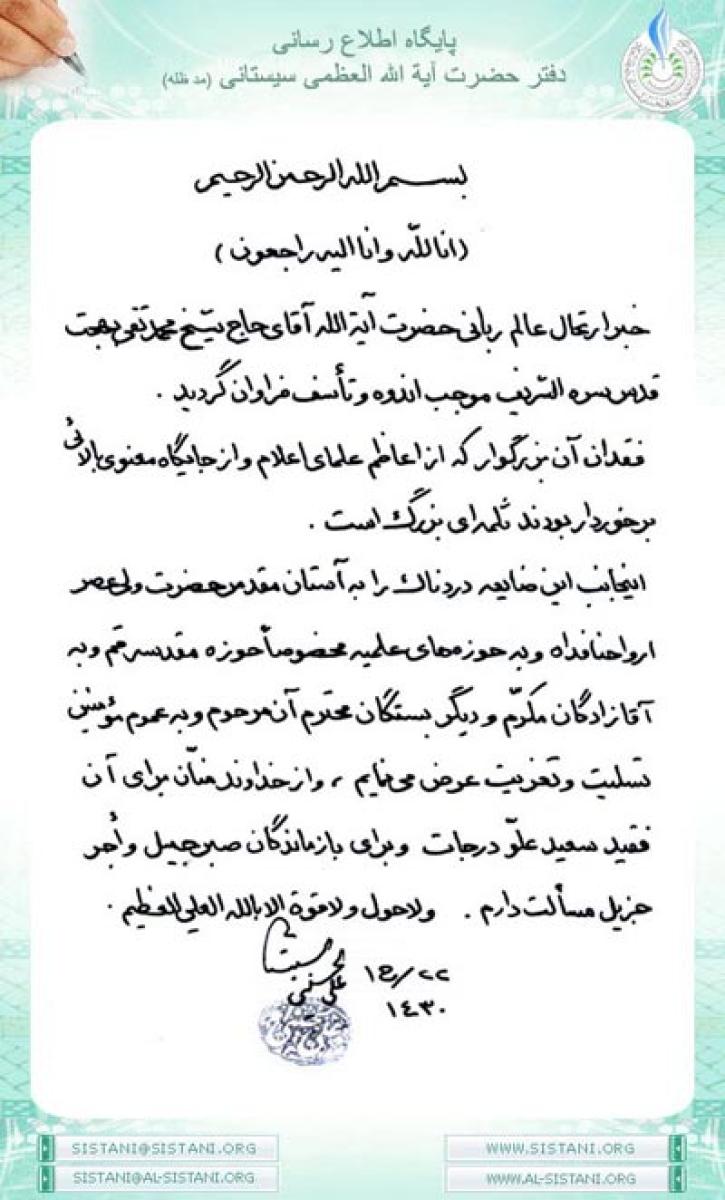 پایگاه اطلاع رسانی
دفتر حضرت آیة الله العظمی سیستانی (مد ظله)
بسم الله الرحمن الرحیم
(انا للّه وانا الیه راجعون)
خبر ارتحال عالم ربانی حضرت آیة الله آقای حاج شیخ محمد تقی بهجت
قدس سره الشریف موجب اندوه و تأسف فراوان گردید .
فقدان آن بزرگوار که از اعاظم علمای اعلام و از جایگاه معنوی بالائی
برخوردار بودند ثلمه ای بزرگ است .
اینجانب این ضایعه دردناک را به آستان مقدس حضرت ولی عصر
ارواحنا فداه و به حوزه های علمیه مخصوصاً حوزه مقدسه قم و به
آقازادگان مکرّم و دیگر بستگان محترم آن مرحوم و به عموم مؤمنین
تسلیت و تعزیت عرض می نمایم ، و از خداوند منّان برای آن
فقید سعید علوّ درجات و برای بازماندگان صبر جمیل و أجر
جزیل مسألت دارم . ولا حول ولا قوة الا بالله العلی العظیم .
علی الحسینی السیستانی
١٤٣٠
SISTANI@SISTANI.ORG WWW.SISTANI.ORG
SISTANI@AL-SISTANI.ORG WWW.AL-SISTANI.ORG